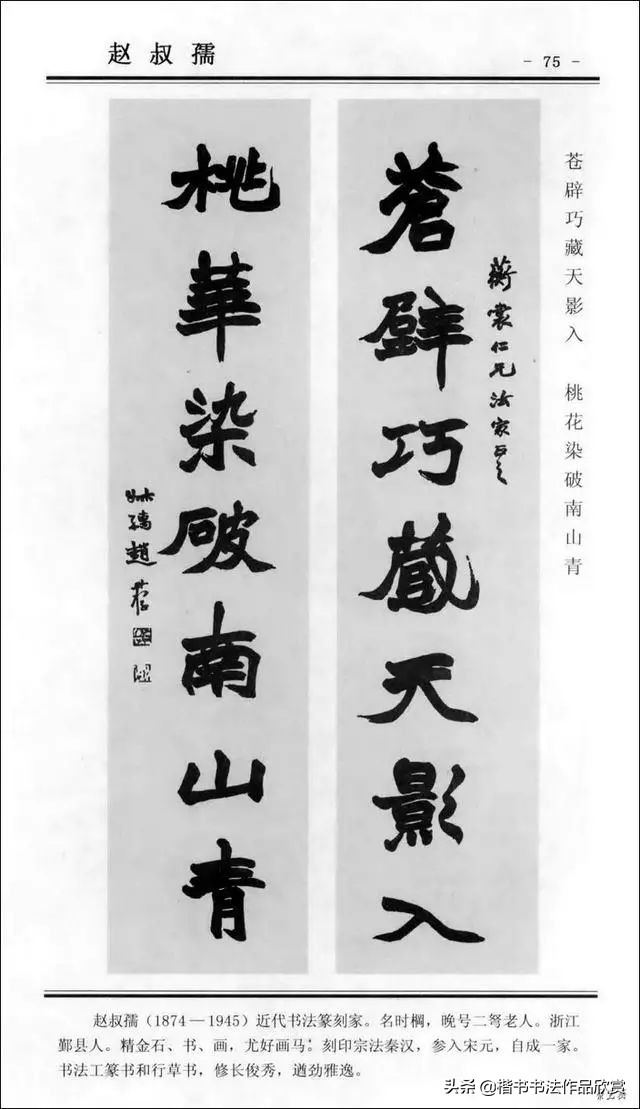 赵叔孺
- 75 -
苍辟巧藏天影入 桃花染破南山青
蒼壁巧藏天影入
蘅裳仁兄法家正之
桃華染破南山青
叔孺趙
赵叔孺(1874—1945)近代书法篆刻家。名时棡，晚号二弩老人。浙江
鄞县人。精金石、书、画，尤好画马。刻印宗法秦汉，参入宋元，自成一家。
书法工篆书和行草书，修长俊秀，遒劲雅逸。
头条@楷书书法作品欣赏